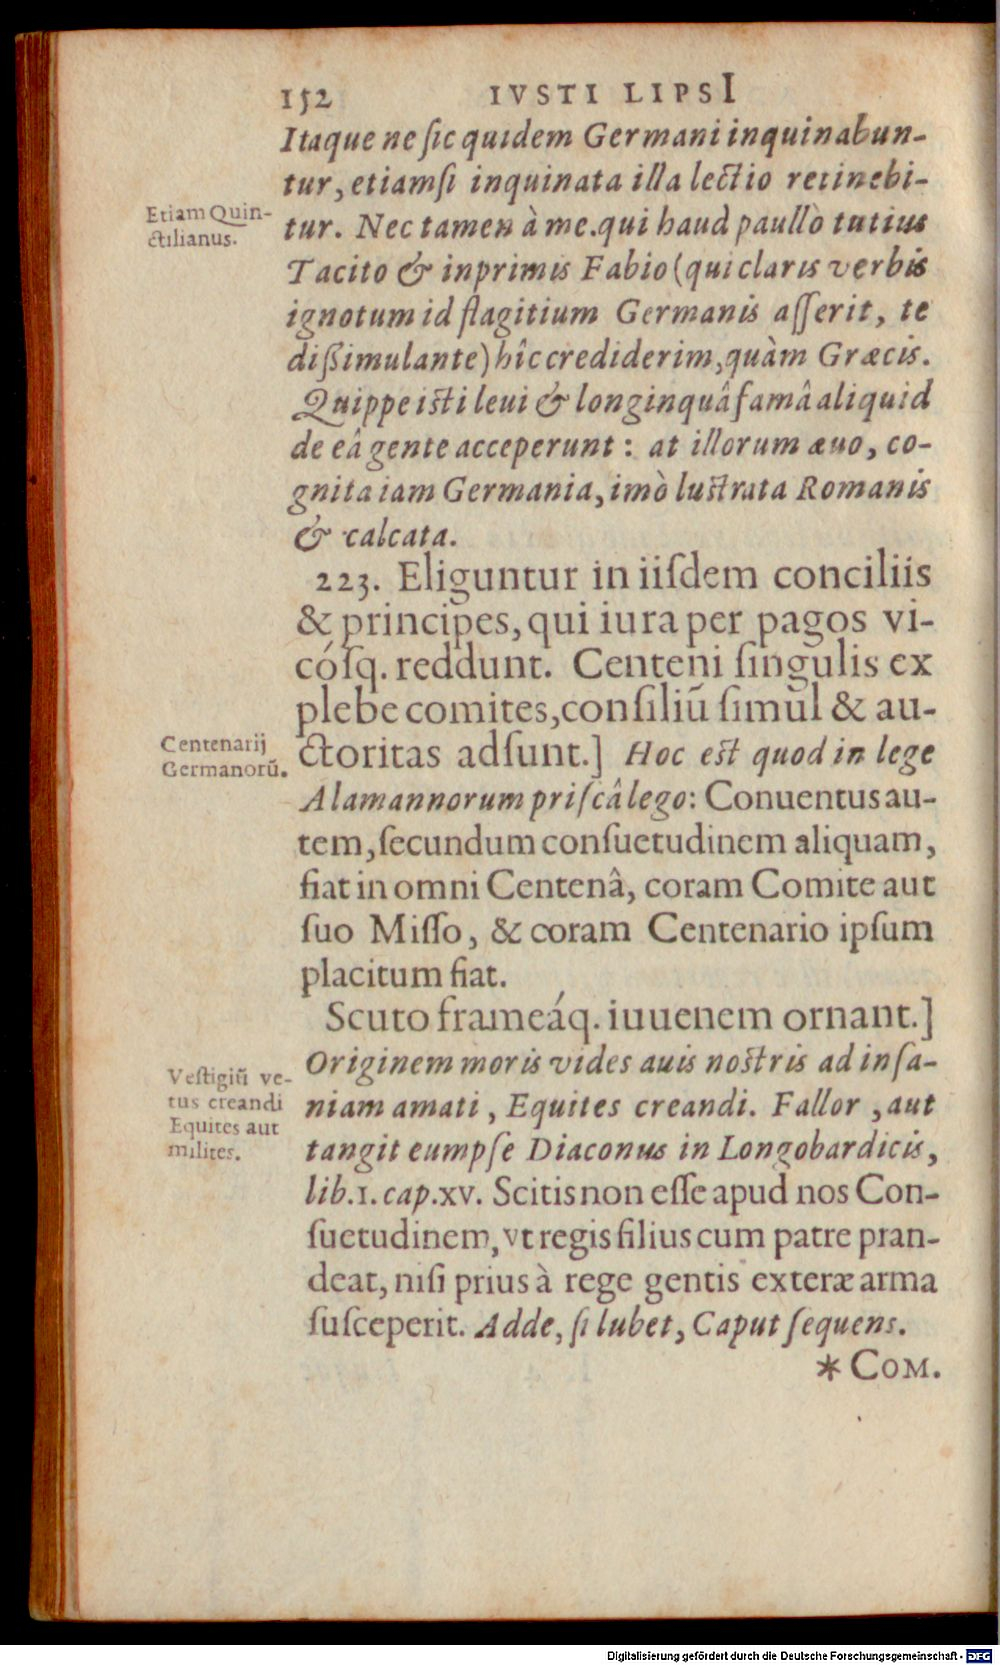 152 IVSTI LIPSI
Itaque ne ſic quidem Germani inquinabun-
tur, etiamſi inquinata illa lectio retinebi-
Etiam Quin-
ctilianus.
tur. Nec tamen à me. qui haud paullò tutius
Tacito & inprimis Fabio (qui claris verbis
ignotum id flagitium Germanis aſſerit, te
diſſimulante) hîc crediderim, quàm Græcis.
Quippe iſti leui & longinquâ famâ aliquid
de eâ gente acceperunt: at illorum æuo, co-
gnita iam Germania, imò luſtrata Romanis
& calcata.
223. Eliguntur in iiſdem conciliis
& principes, qui iura per pagos vi-
cóſq. reddunt. Centeni ſingulis ex
plebe comites, conſiliũ ſimul & au-
Centenarij
Germanorũ.
ctoritas adſunt.] Hoc eſt quod in lege
Alamannorum priſcâ lego: Conuentus au-
tem, ſecundum conſuetudinem aliquam,
fiat in omni Centenâ, coram Comite aut
ſuo Miſſo, & coram Centenario ipſum
placitum fiat.
Scuto frameáq. iuuenem ornant.]
Originem moris vides auis noſtris ad inſa-
Veſtigiũ ve-
tus creandi
Equites aut
milites.
niam amati, Equites creandi. Fallor, aut
tangit eumpſe Diaconus in Longobardicis,
lib. I. cap. XV. Scitis non eſſe apud nos Con-
ſuetudinem, vt regis filius cum patre pran-
deat, niſi prius à rege gentis exteræ arma
ſuſceperit. Adde, ſi lubet, Caput ſequens.
* COM.
Digitalisierung gefördert durch die Deutsche Forschungsgemeinschaft - DFG